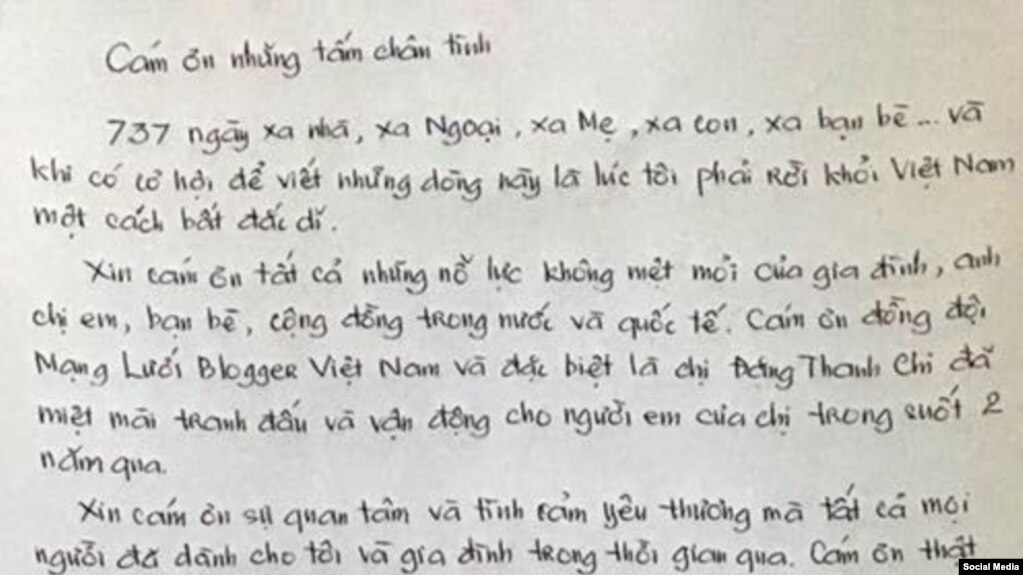 Cám ơn những tấm chân tình
737 ngày xa nhà, xa Ngoại, xa Mẹ, xa con, xa bạn bè... và
khi có cơ hội để viết những dòng này là lúc tôi phải rời khỏi Việt Nam
một cách bất đắc dĩ.
Xin cám ơn tất cả những nỗ lực không mệt mỏi của gia đình, anh
chị em, bạn bè, cộng đồng trong nước và quốc tế. Cám ơn đồng đội
Mạng Lưới Blogger Việt Nam và đặc biệt là chị Đặng Thanh Chi đã
miệt mài tranh đấu và vận động cho người em của chị trong suốt 2
năm qua.
Xin cám ơn sự quan tâm và tình cảm yêu thương mà tất cả mọi
người đã dành cho tôi và gia đình trong thời gian qua. Cám ơn thật
Social Media